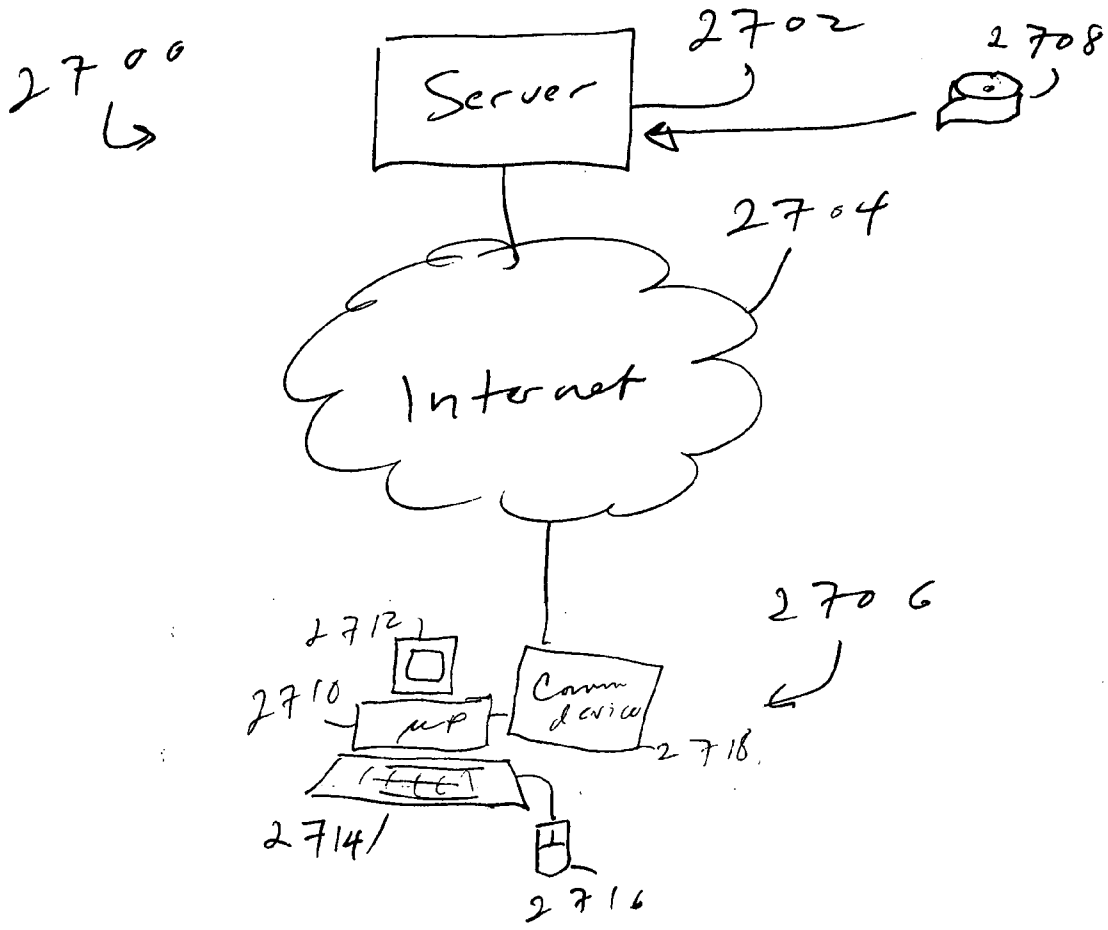 2700
2702
2708
Server
2704
Internet
2706
2712
2710
μP
Comm
device
2718
2714
2716